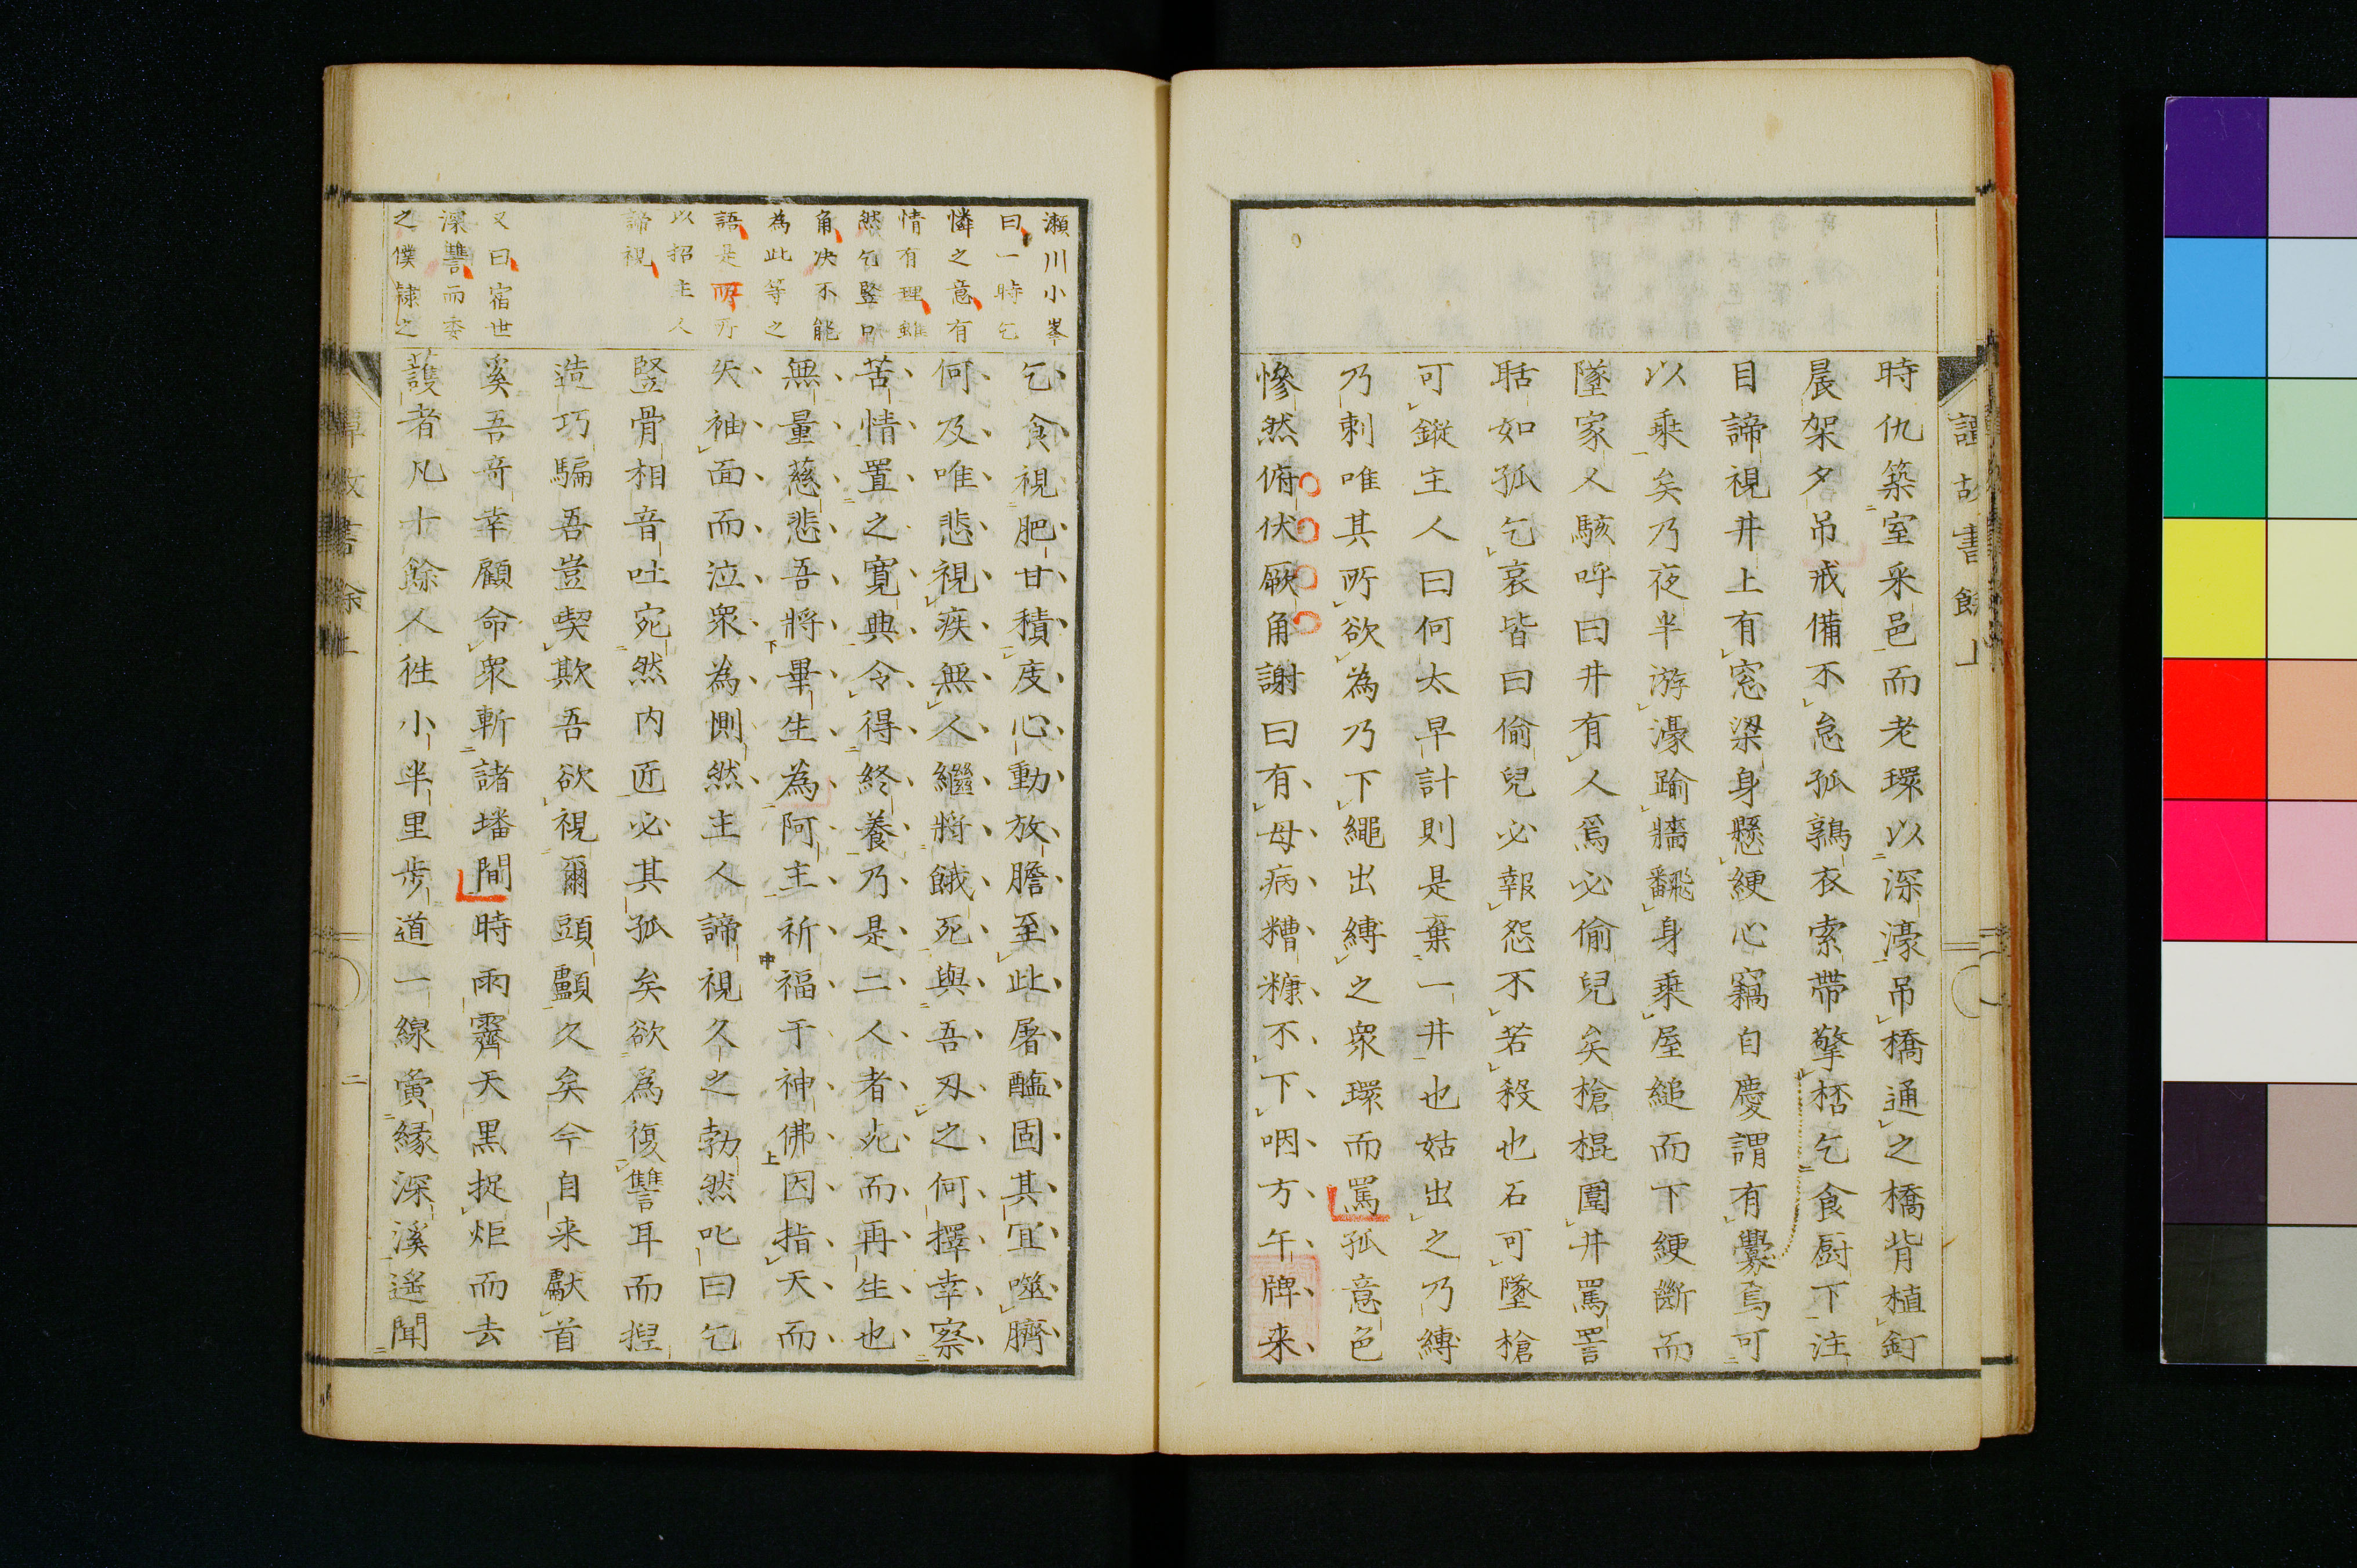 時仇築室采邑而老環以深濠吊橋通之橋背植釘
晨架夕吊戒備不怠孤鶉衣索帶擎栝乞食厨下注
目諦視井上有窓梁身懸綆心竊自慶謂有釁焉可
以乘矣乃夜半游濠踰牆飜身乘屋縋而下綆斷而
墜家人駭呼曰井有人焉必偷兒矣槍棍圍井罵詈
聒如孤乞哀皆曰偷兒必報怨不若殺也石可墜槍
可鏦主人曰何太早計則是棄一井也姑出之乃縛
乃刺唯其所欲為乃下繩出縛之衆環而罵孤意色
慘然俯伏厥角謝曰有母病糟糠不下咽方午牌来
譚故書餘上
瀬川小峯
曰一時乞
憐之意有
情有理雖
然乞竪口
角决不能
為此等之
語是所
以招主人
諦視
又曰宿世
深讐而委
之僕隷之
乞食視肥甘積庋心動放膽至此屠醢固其宜噬臍
何及唯悲視疾無人繼將餓死與吾刄之何擇幸察
苦情置之寛典令得終養乃是二人者死而再生也
無量慈悲吾將畢生為阿主祈福于神佛因指天而
矢袖面而泣衆為惻然主人諦視久之勃然叱曰乞
竪骨相音吐宛然内匠必其孤矣欲為復讐耳而揑
造巧騙吾豈喫欺吾欲視爾頭顱久矣今自来獻首
奚吾奇幸顧命衆斬諸墦間時雨霽天黒捉炬而去
護者凡十餘人徃小半里步道一線夤縁深溪遥聞
譚故書餘上
二